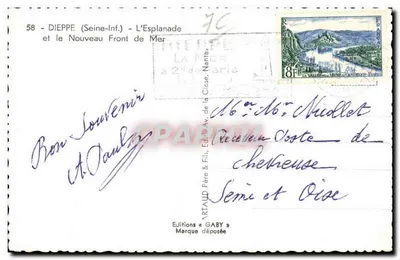 7C
58 - DIEPPE (Seine-Inf.) - L'Esplanade
et le Nouveau Front de Mer
DIEPPE
LA
à 2h de Paris
8F
Bon Souvenir
Mer Mr Nicollet
Receveur Poste de
Chevreuse
Seine et Oise
ARTAUD Père & Fils, Éd., Av. de la Close, Nantes
Editions « GABY »
Marque déposée